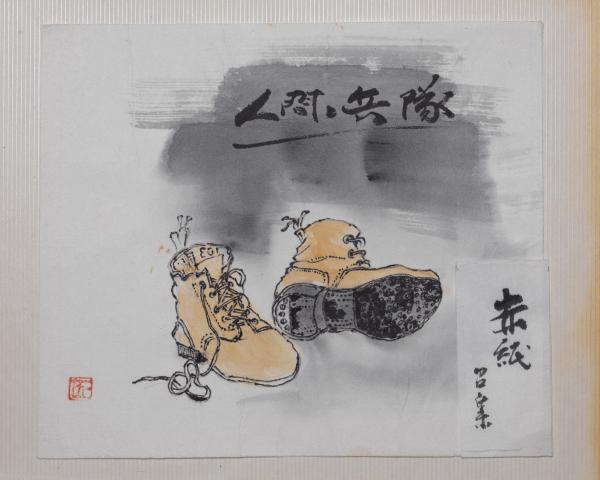 人間と兵隊
赤紙
召集